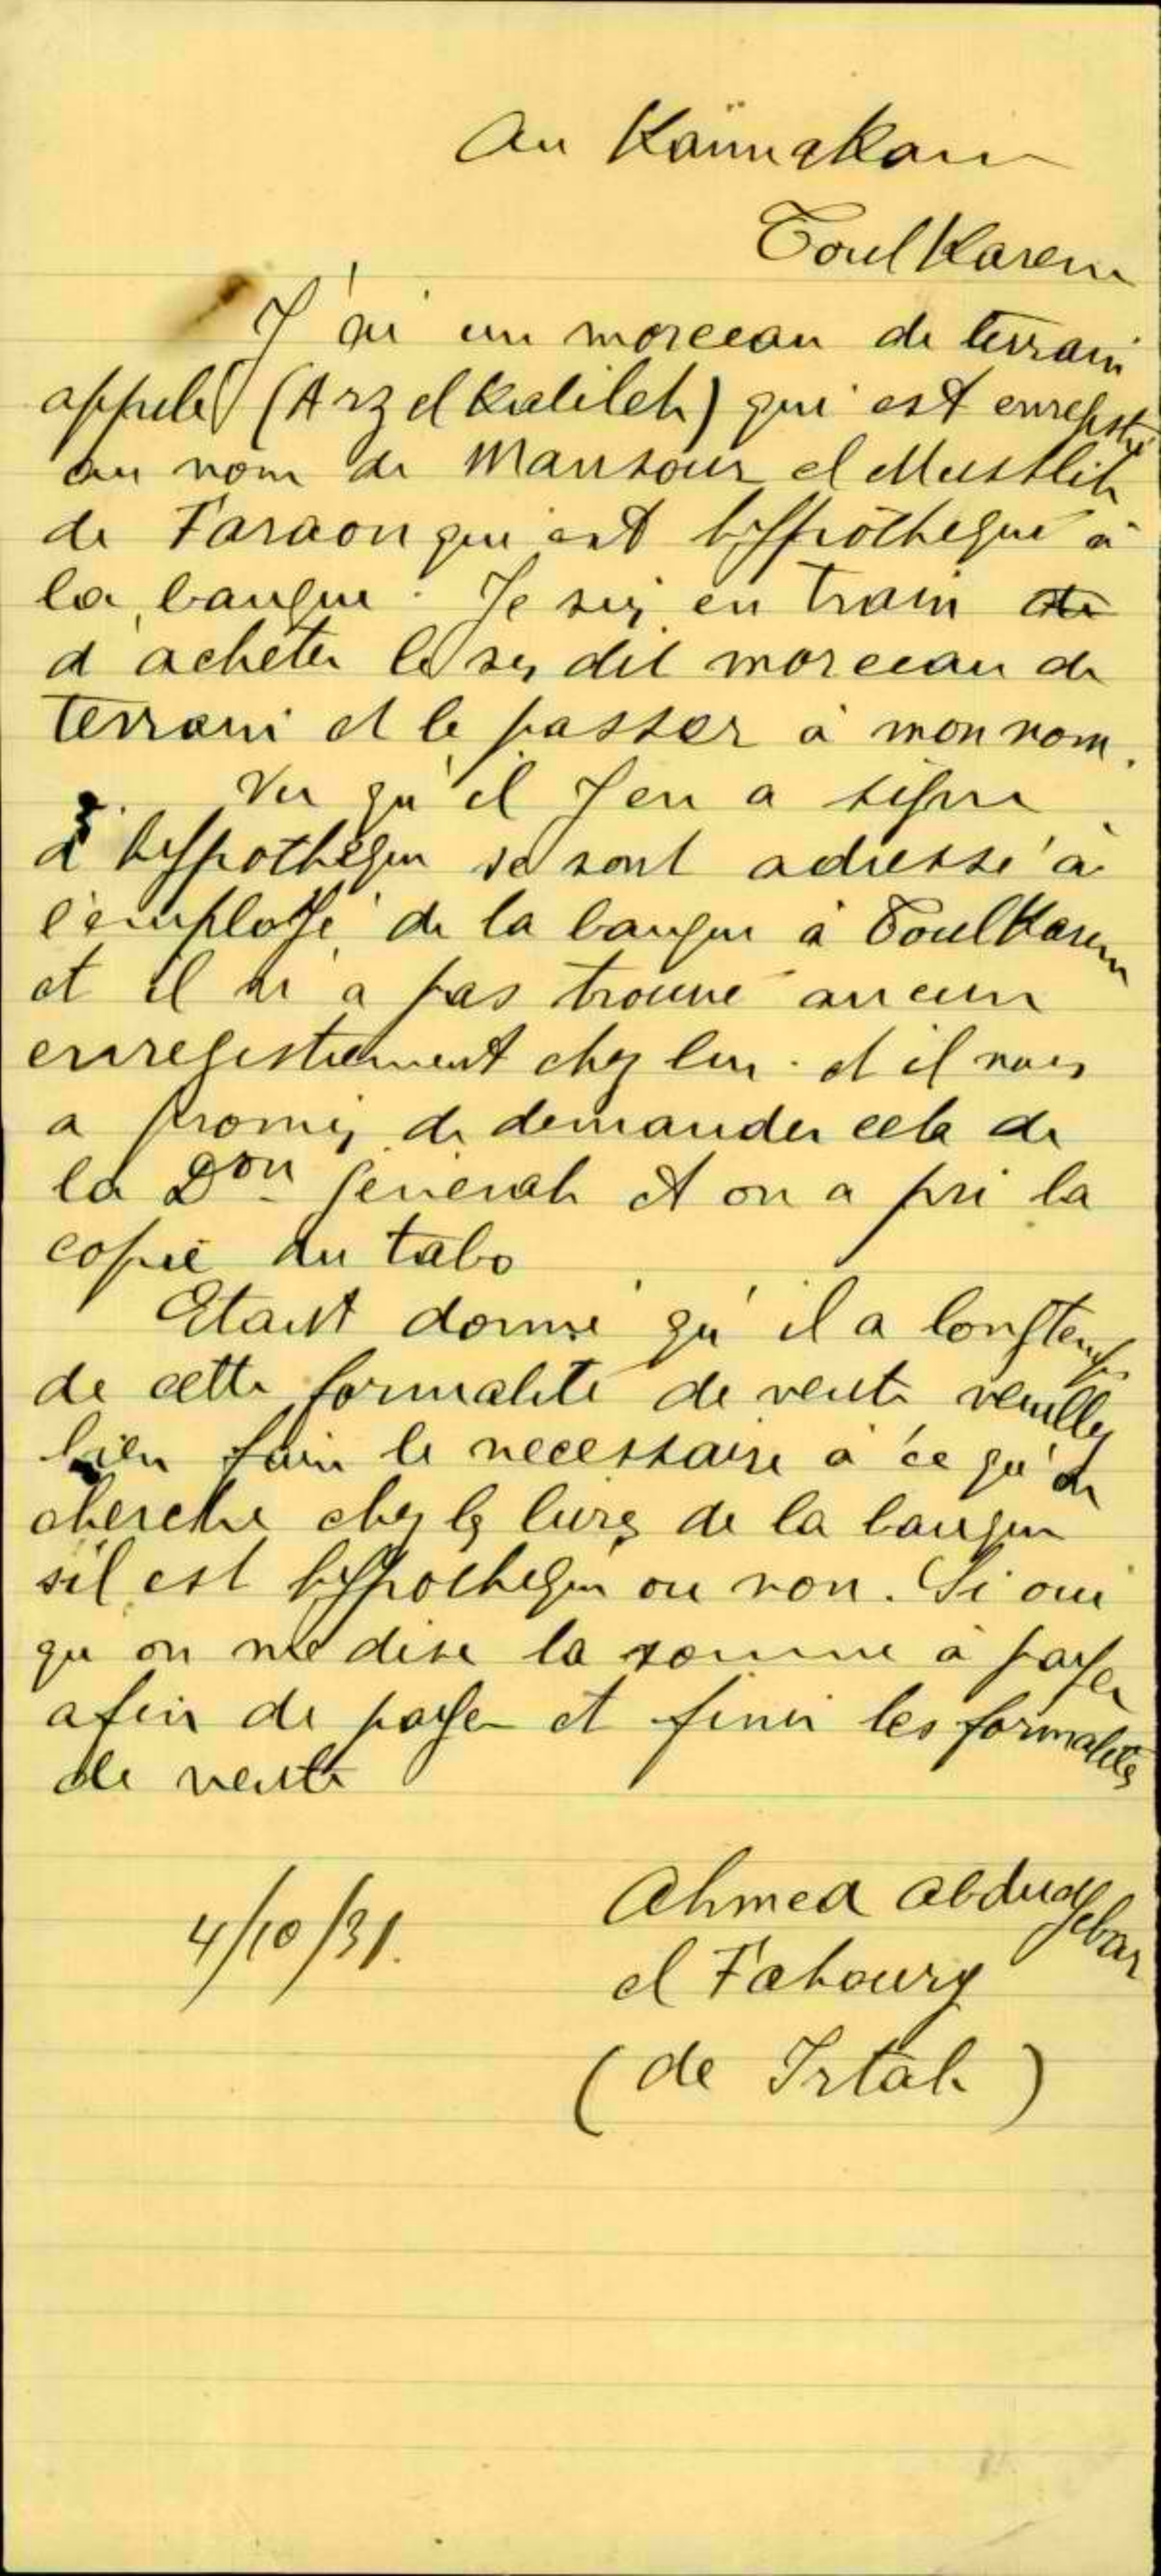 Au Kaïmakam
Toul Karem
J'ai un morceau de terrain
appelé (Arz el Kalileh) qui est enregistré
au nom de Mansour el Muslih
de Faraon qui est hyppothequé à
la banque. Je suis en train
d'acheter le sus dit morceau de
terrain et le passer à mon nom.
Vu qu'il y en a signe
d'hyppothèque se sont adressé à
l'employé de la banque à Toul Karem
et il n'a pas trouvé aucun
enregistrement chez lui. et il nous
a promis de demander cela de
la Don General et on a pri la
copie du tabo
Etant donné qu'il a longtemps
de cette formalité de vente veuillez
bien faire le necessaire à ce qu'on
cherche chez les livres de la banque
s'il est hyppothequé ou non. Si oui
qu'on me dise la somme à payer
afin de payer et finir les formalités
de vente
4/10/31.
Ahmed Abdul Jebar
el Fakoury
(de Irtah)